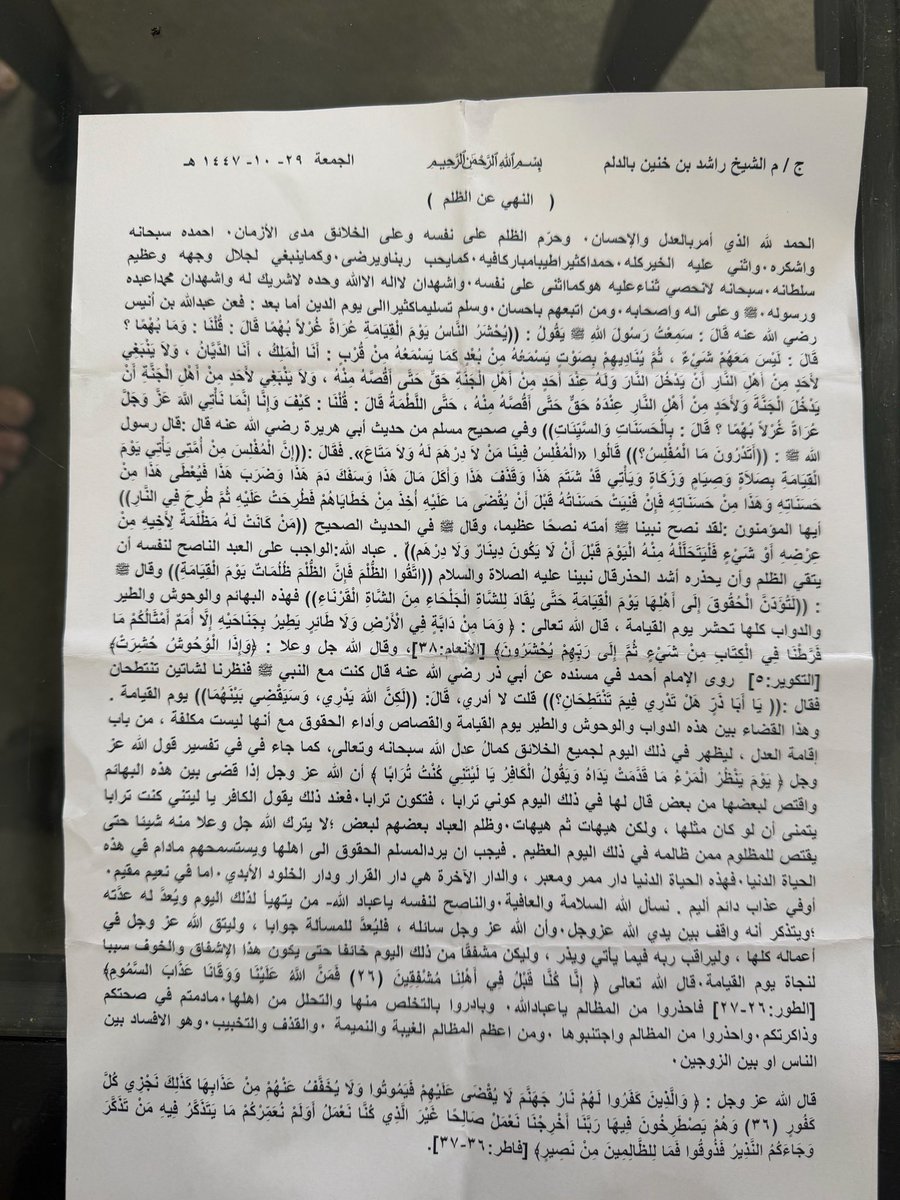 ج / م الشيخ راشد بن خنين بالدلم بِسْمِ اللهِ الرَّحْمَنِ الرَّحِيمِ الجمعة ٢٩- ١٠- ١٤٤٧ هـ
( النهي عن الظلم )
الحمد لله الذي أمربالعدل والإحسان. وحرّم الظلم على نفسه وعلى الخلائق مدى الأزمان. احمده سبحانه
واشكره.واثني عليه الخيركله.حمداكثيراطيبامباركافيه.كمايحب ربناويرضى.وكماينبغي لجلال وجهه وعظيم
سلطانه.سبحانه لانحصي ثناءعليه هوكمااثنى على نفسه.واشهدان لااله الاالله وحده لاشريك له واشهدان محمداعبده
ورسوله.ﷺ وعلى اله واصحابه.ومن اتبعهم باحسان.وسلم تسليماكثيراالى يوم الدين أما بعد : فعن عبدالله بن أنيس
رضي الله عنه قَالَ : سَمِعْتُ رَسُولَ اللهِ ﷺ يَقُولُ : ((يُحْشَرُ النَّاسُ يَوْمَ الْقِيَامَةِ عُرَاةً غُرْلاً بُهْمًا قَالَ : قُلْنَا : وَمَا بُهْمًا ؟
قَالَ : لَيْسَ مَعَهُمْ شَيْءٌ ، ثُمَّ يُنَادِيهِمْ بِصَوْتٍ يَسْمَعُهُ مِنْ بُعْدٍ كَمَا يَسْمَعُهُ مِنْ قُرْبٍ : أَنَا الْمَلِكُ ، أَنَا الدَّيَّانُ ، وَلَا يَنْبَغِي
لأَحَدٍ مِنْ أَهْلِ النَّارِ أَنْ يَدْخُلَ النَّارَ وَلَهُ عِنْدَ أَحَدٍ مِنْ أَهْلِ الْجَنَّةِ حَقٌّ حَتَّى أَقُصَّهُ مِنْهُ ، وَلَا يَنْبَغِي لأَحَدٍ مِنْ أَهْلِ الْجَنَّةِ أَنْ
يَدْخُلَ الْجَنَّةَ وَلأَحَدٍ مِنْ أَهْلِ النَّارِ عِنْدَهُ حَقٌّ حَتَّى أَقُصَّهُ مِنْهُ ، حَتَّى اللَّطْمَةُ قَالَ : قُلْنَا : كَيْفَ وَإِنَّا إِنَّمَا نَأْتِي اللهَ عَزَّ وَجَلَّ
عُرَاةً غُرْلاً بُهْمًا ؟ قَالَ : بِالْحَسَنَاتِ وَالسَّيِّئَاتِ)) وفي صحيح مسلم من حديث أبي هريرة رضي الله عنه قال :قال رسول
الله ﷺ : ((أَتَدْرُونَ مَا الْمُفْلِسُ؟)) قَالُوا «الْمُفْلِسُ فِينَا مَنْ لاَ دِرْهَمَ لَهُ وَلاَ مَتَاعَ». فَقَالَ :((إِنَّ الْمُفْلِسَ مِنْ أُمَّتِي يَأْتِي يَوْمَ
الْقِيَامَةِ بِصَلاَةٍ وَصِيَامٍ وَزَكَاةٍ وَيَأْتِي قَدْ شَتَمَ هَذَا وَقَذَفَ هَذَا وَأَكَلَ مَالَ هَذَا وَسَفَكَ دَمَ هَذَا وَضَرَبَ هَذَا فَيُعْطَى هَذَا مِنْ
حَسَنَاتِهِ وَهَذَا مِنْ حَسَنَاتِهِ فَإِنْ فَنِيَتْ حَسَنَاتُهُ قَبْلَ أَنْ يُقْضَى مَا عَلَيْهِ أُخِذَ مِنْ خَطَايَاهُمْ فَطُرِحَتْ عَلَيْهِ ثُمَّ طُرِحَ فِي النَّارِ))
أيها المؤمنون :لقد نصح نبينا ﷺ أمته نصحًا عظيما، وقال ﷺ في الحديث الصحيح ((مَنْ كَانَتْ لَهُ مَظْلَمَةٌ لأَخِيهِ مِنْ
عِرْضِهِ أَوْ شَيْءٍ فَلْيَتَحَلَّلْهُ مِنْهُ الْيَوْمَ قَبْلَ أَنْ لاَ يَكُونَ دِينَارٌ وَلاَ دِرْهَمٌ)) . عباد الله:الواجب على العبد الناصح لنفسه أن
يتقي الظلم وأن يحذره أشد الحذرقال نبينا عليه الصلاة والسلام ((اتَّقُوا الظُّلْمَ فَإِنَّ الظُّلْمَ ظُلُمَاتٌ يَوْمَ الْقِيَامَةِ)) وقال ﷺ
: ((لَتُؤَدُّنَّ الْحُقُوقَ إِلَى أَهْلِهَا يَوْمَ الْقِيَامَةِ حَتَّى يُقَادَ لِلشَّاةِ الْجَلْحَاءِ مِنَ الشَّاةِ الْقَرْنَاءِ)) فهذه البهائم والوحوش والطير
والدواب كلها تحشر يوم القيامة ، قال الله تعالى : ﴿ وَمَا مِنْ دَابَّةٍ فِي الْأَرْضِ وَلَا طَائِرٍ يَطِيرُ بِجَنَاحَيْهِ إِلَّا أُمَمٌ أَمْثَالُكُمْ مَا
فَرَّطْنَا فِي الْكِتَابِ مِنْ شَيْءٍ ثُمَّ إِلَى رَبِّهِمْ يُحْشَرُونَ﴾ [الأنعام:٣٨]، وقال الله جل وعلا : ﴿وَإِذَا الْوُحُوشُ حُشِرَتْ﴾
[التكوير:٥] روى الإمام أحمد في مسنده عن أبي ذر رضي الله عنه قال كنت مع النبي ﷺ فنظرنا لشاتين تنتطحان
فقال :(( يَا أَبَا ذَرٍّ هَلْ تَدْرِي فِيمَ تَنْتَطِحَانِ؟)) قلت لا أدري، قَالَ: ((لَكِنَّ اللهَ يَدْرِي، وَسَيَقْضِي بَيْنَهُمَا)) يوم القيامة .
وهذا القضاء بين هذه الدواب والوحوش والطير يوم القيامة والقصاص وأداء الحقوق مع أنها ليست مكلفة ، من باب
إقامة العدل ، ليظهر في ذلك اليوم لجميع الخلائق كمالُ عدل الله سبحانه وتعالى، كما جاء في في تفسير قول الله عز
وجل ﴿ يَوْمَ يَنْظُرُ الْمَرْءُ مَا قَدَّمَتْ يَدَاهُ وَيَقُولُ الْكَافِرُ يَا لَيْتَنِي كُنْتُ تُرَابًا ﴾ أن الله عز وجل إذا قضى بين هذه البهائم
واقتص لبعضها من بعض قال لها في ذلك اليوم كوني ترابا ، فتكون ترابا. فعند ذلك يقول الكافر يا ليتني كنت ترابا
يتمنى أن لو كان مثلها ، ولكن هيهات ثم هيهات.وظلم العباد بعضهم لبعض ؛لا يترك الله جل وعلا منه شيئا حتى
يقتص للمظلوم ممن ظالمه في ذلك اليوم العظيم . فيجب ان يردالمسلم الحقوق الى اهلها ويستسمحهم مادام في هذه
الحياة الدنيا.فهذه الحياة الدنيا دار ممر ومعبر ، والدار الآخرة هي دار القرار ودار الخلود الأبدي.اما في نعيم مقيم.
أوفي عذاب دائم أليم . نسأل الله السلامة والعافية.والناصح لنفسه ياعباد الله- من يتهيأ لذلك اليوم ويُعدُّ له عدَّته
؛ويتذكر أنه واقف بين يدي الله عزوجل.وأن الله عز وجل سائله ، فليُعدَّ للمسألة جوابا ، وليتق الله عز وجل في
أعماله كلها ، وليراقب ربه فيما يأتي ويذر ، وليكن مشفقًا من ذلك اليوم خائفا حتى يكون هذا الإشفاق والخوف سببا
لنجاة يوم القيامة.قال الله تعالى ﴿ إِنَّا كُنَّا قَبْلُ فِي أَهْلِنَا مُشْفِقِينَ (٢٦) فَمَنَّ اللَّهُ عَلَيْنَا وَوَقَانَا عَذَابَ السَّمُومِ﴾
[الطور:٢٦-٢٧] فاحذروا من المظالم ياعبادالله. وبادروا بالتخلص منها والتحلل من اهلها.مادمتم في صحتكم
وذاكرتكم.واحذروا من المظالم واجتنبوها .ومن اعظم المظالم الغيبة والنميمة .والقذف والتخبيب.وهو الافساد بين
الناس او بين الزوجين.
قال الله عز وجل : ﴿ وَالَّذِينَ كَفَرُوا لَهُمْ نَارُ جَهَنَّمَ لَا يُقْضَى عَلَيْهِمْ فَيَمُوتُوا وَلَا يُخَفَّفُ عَنْهُمْ مِنْ عَذَابِهَا كَذَلِكَ نَجْزِي كُلَّ
كَفُورٍ (٣٦) وَهُمْ يَصْطَرِخُونَ فِيهَا رَبَّنَا أَخْرِجْنَا نَعْمَلْ صَالِحًا غَيْرَ الَّذِي كُنَّا نَعْمَلُ أَوَلَمْ نُعَمِّرْكُمْ مَا يَتَذَكَّرُ فِيهِ مَنْ تَذَكَّرَ
وَجَاءَكُمُ النَّذِيرُ فَذُوقُوا فَمَا لِلظَّالِمِينَ مِنْ نَصِيرٍ﴾ [فاطر:٣٦-٣٧].